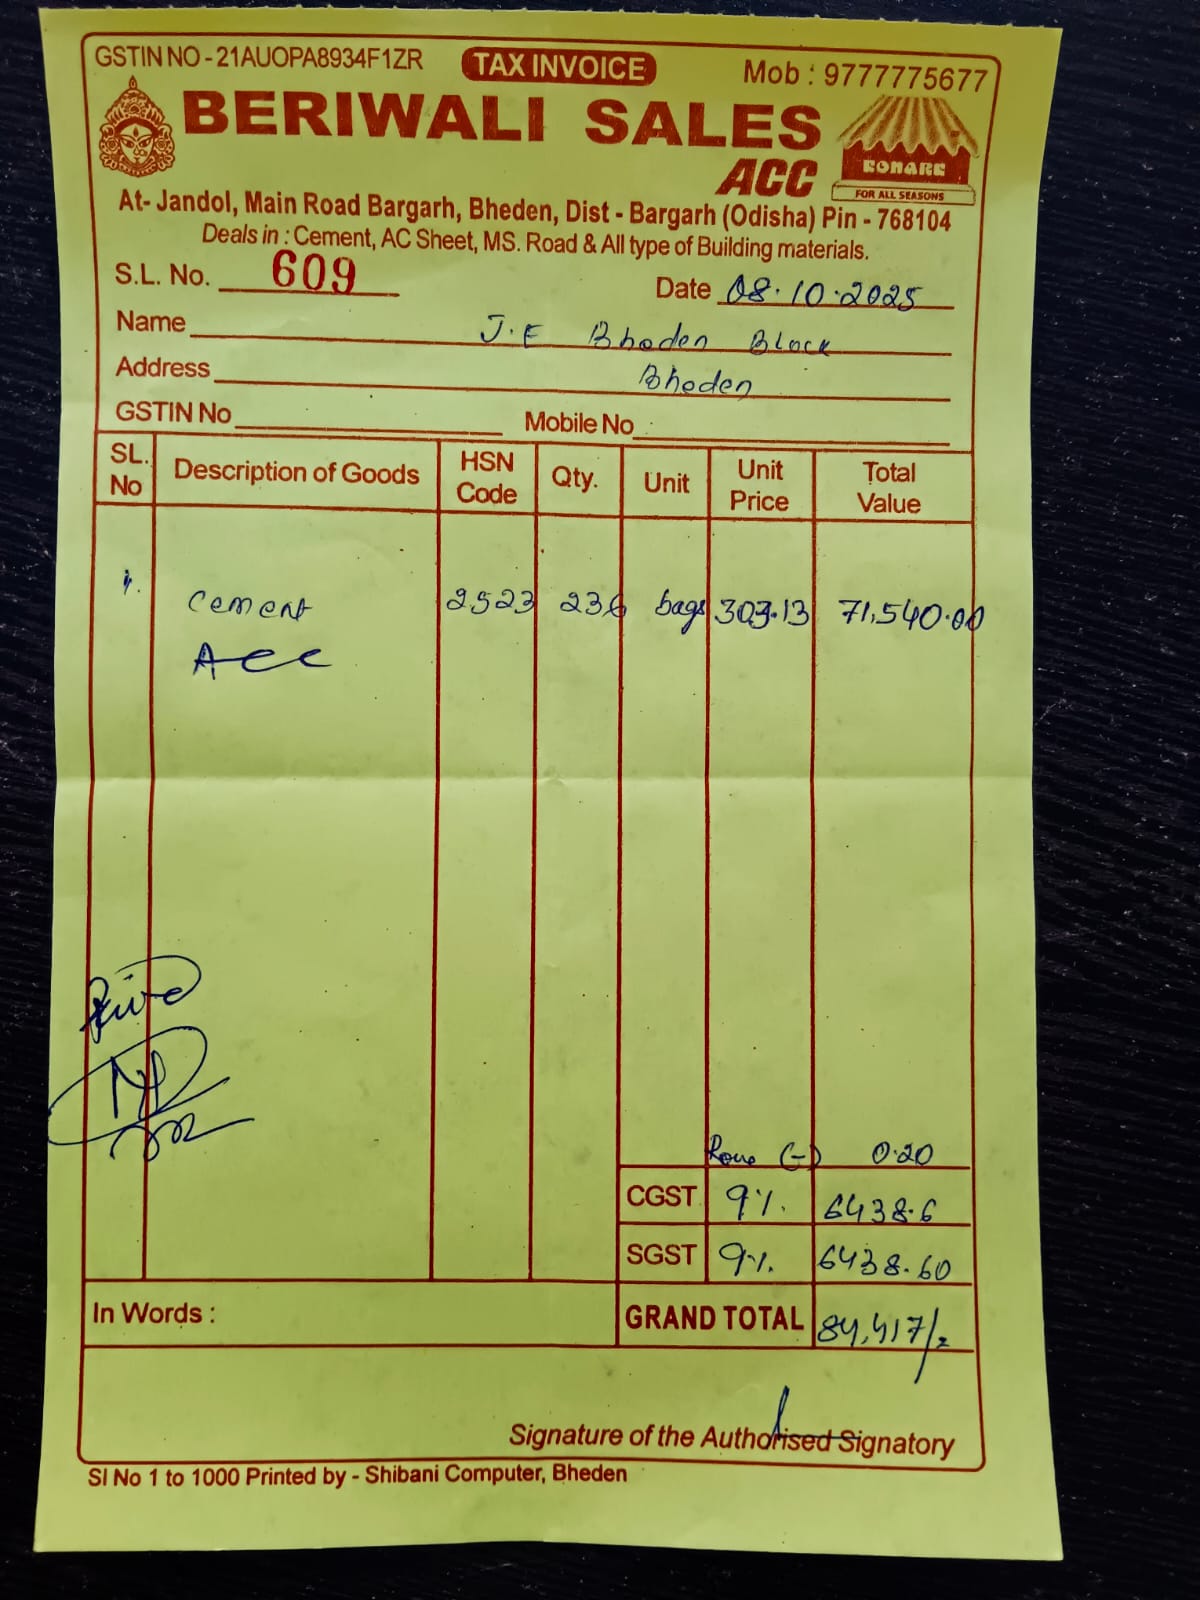 GSTIN NO - 21AUOPA8934F1ZR TAX INVOICE Mob : 9777775677
BERIWALI SALES
ACC
KONARK
FOR ALL SEASONS
At- Jandol, Main Road Bargarh, Bheden, Dist - Bargarh (Odisha) Pin - 768104
Deals in : Cement, AC Sheet, MS. Road & All type of Building materials.
S.L. No. 609 Date 08.10.2025
Name J.E Bheden Block
Address Bheden
GSTIN No Mobile No
SL. No Description of Goods HSN Code Qty. Unit Unit Price Total Value
1. Cement 2523 236 bags 303.13 71,540.00
ACC
(-) 0.20
CGST 9%. 6438.6
SGST 9%. 6438.60
In Words : GRAND TOTAL 84,417/-
Signature of the Authorised Signatory
Sl No 1 to 1000 Printed by - Shibani Computer, Bheden